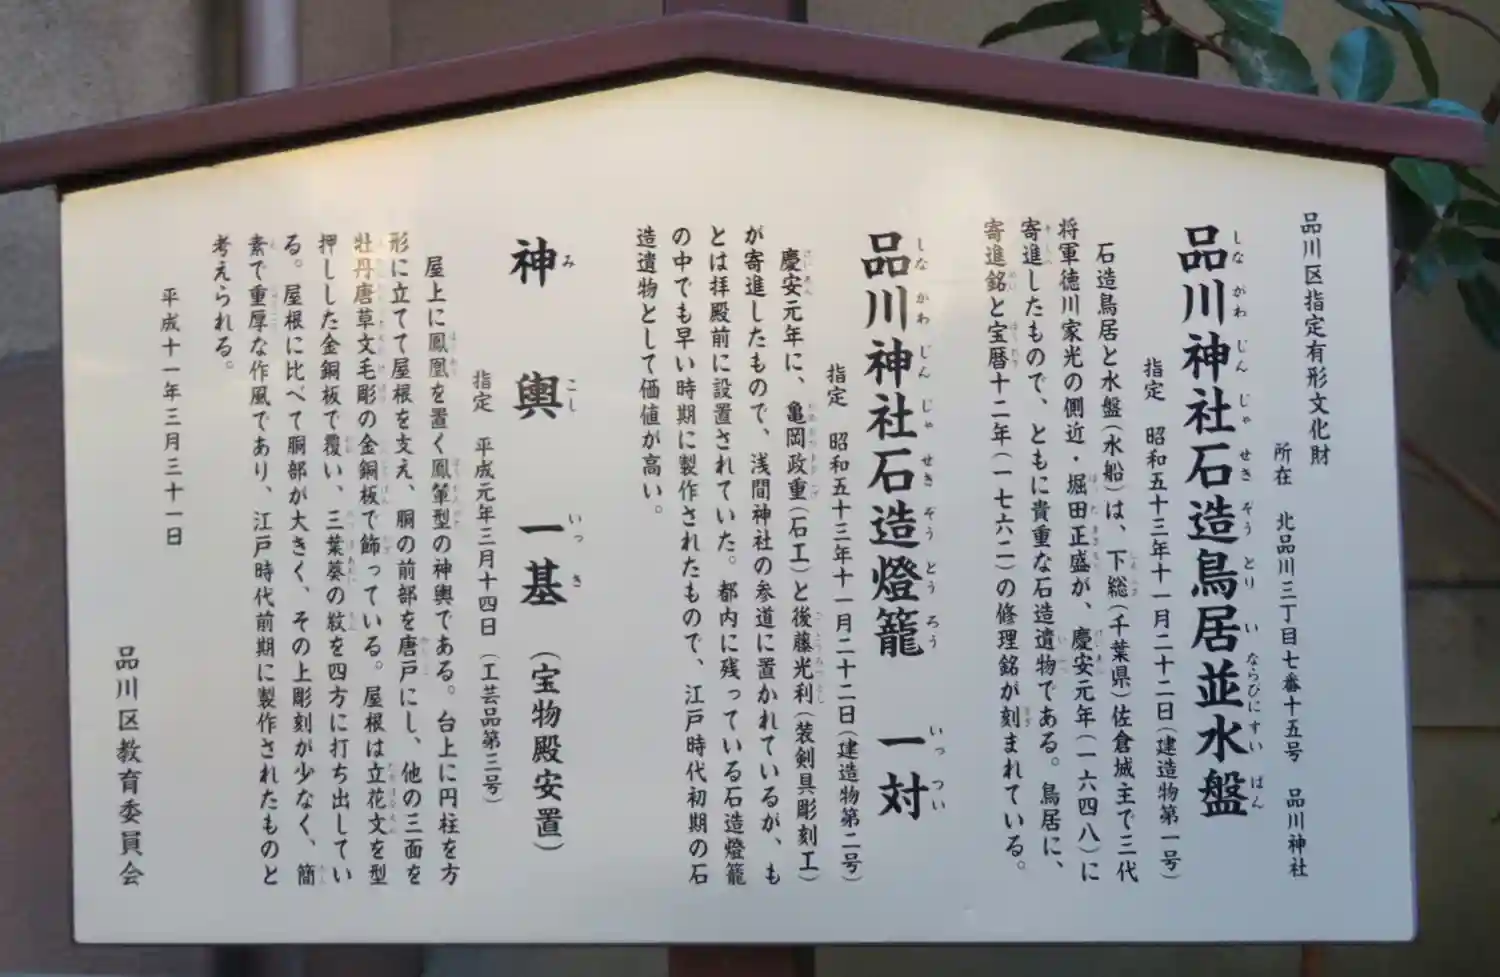 品川区指定有形文化財
所在　北品川三丁目七番十五号　品川神社
品川神社石造鳥居並水盤
しながわじんじゃせきぞうとりいならびにすいばん
指定　昭和五十三年十一月二十二日（建造物第一号）
石造鳥居と水盤（水船）は、下総（千葉県）佐倉城主で三代
将軍徳川家光の側近・堀田正盛が、慶安元年（一六四八）に
寄進したもので、ともに貴重な石造遺物である。鳥居に、
寄進銘と宝暦十二年（一七六二）の修理銘が刻まれている。
品川神社石造燈籠　一対
しなかわじんじゃせきぞうとうろう　いっつい
指定　昭和五十三年十一月二十二日（建造物第二号）
慶安元年に、亀岡政重（石工）と後藤光利（装剣具彫刻工）
が寄進したもので、浅間神社の参道に置かれているが、も
とは拝殿前に設置されていた。都内に残っている石造燈籠
の中でも早い時期に製作されたもので、江戸時代初期の石
造遺物として価値が高い。
神輿　一基　（宝物殿安置）
みこし　いっき
指定　平成元年三月十四日（工芸品第三号）
屋上に鳳凰を置く鳳輦型の神輿である。台上に円柱を方
形に立てて屋根を支え、胴の前部を唐戸にし、他の三面を
牡丹唐草文毛彫の金銅板で飾っている。屋根は立花文を型
押しした金銅板で覆い、三葉葵の紋を四方に打ち出してい
る。屋根に比べて胴部が大きく、その上彫刻が少なく、簡
素で重厚な作風であり、江戸時代前期に製作されたものと
考えられる。
平成十一年三月三十一日
品川区教育委員会